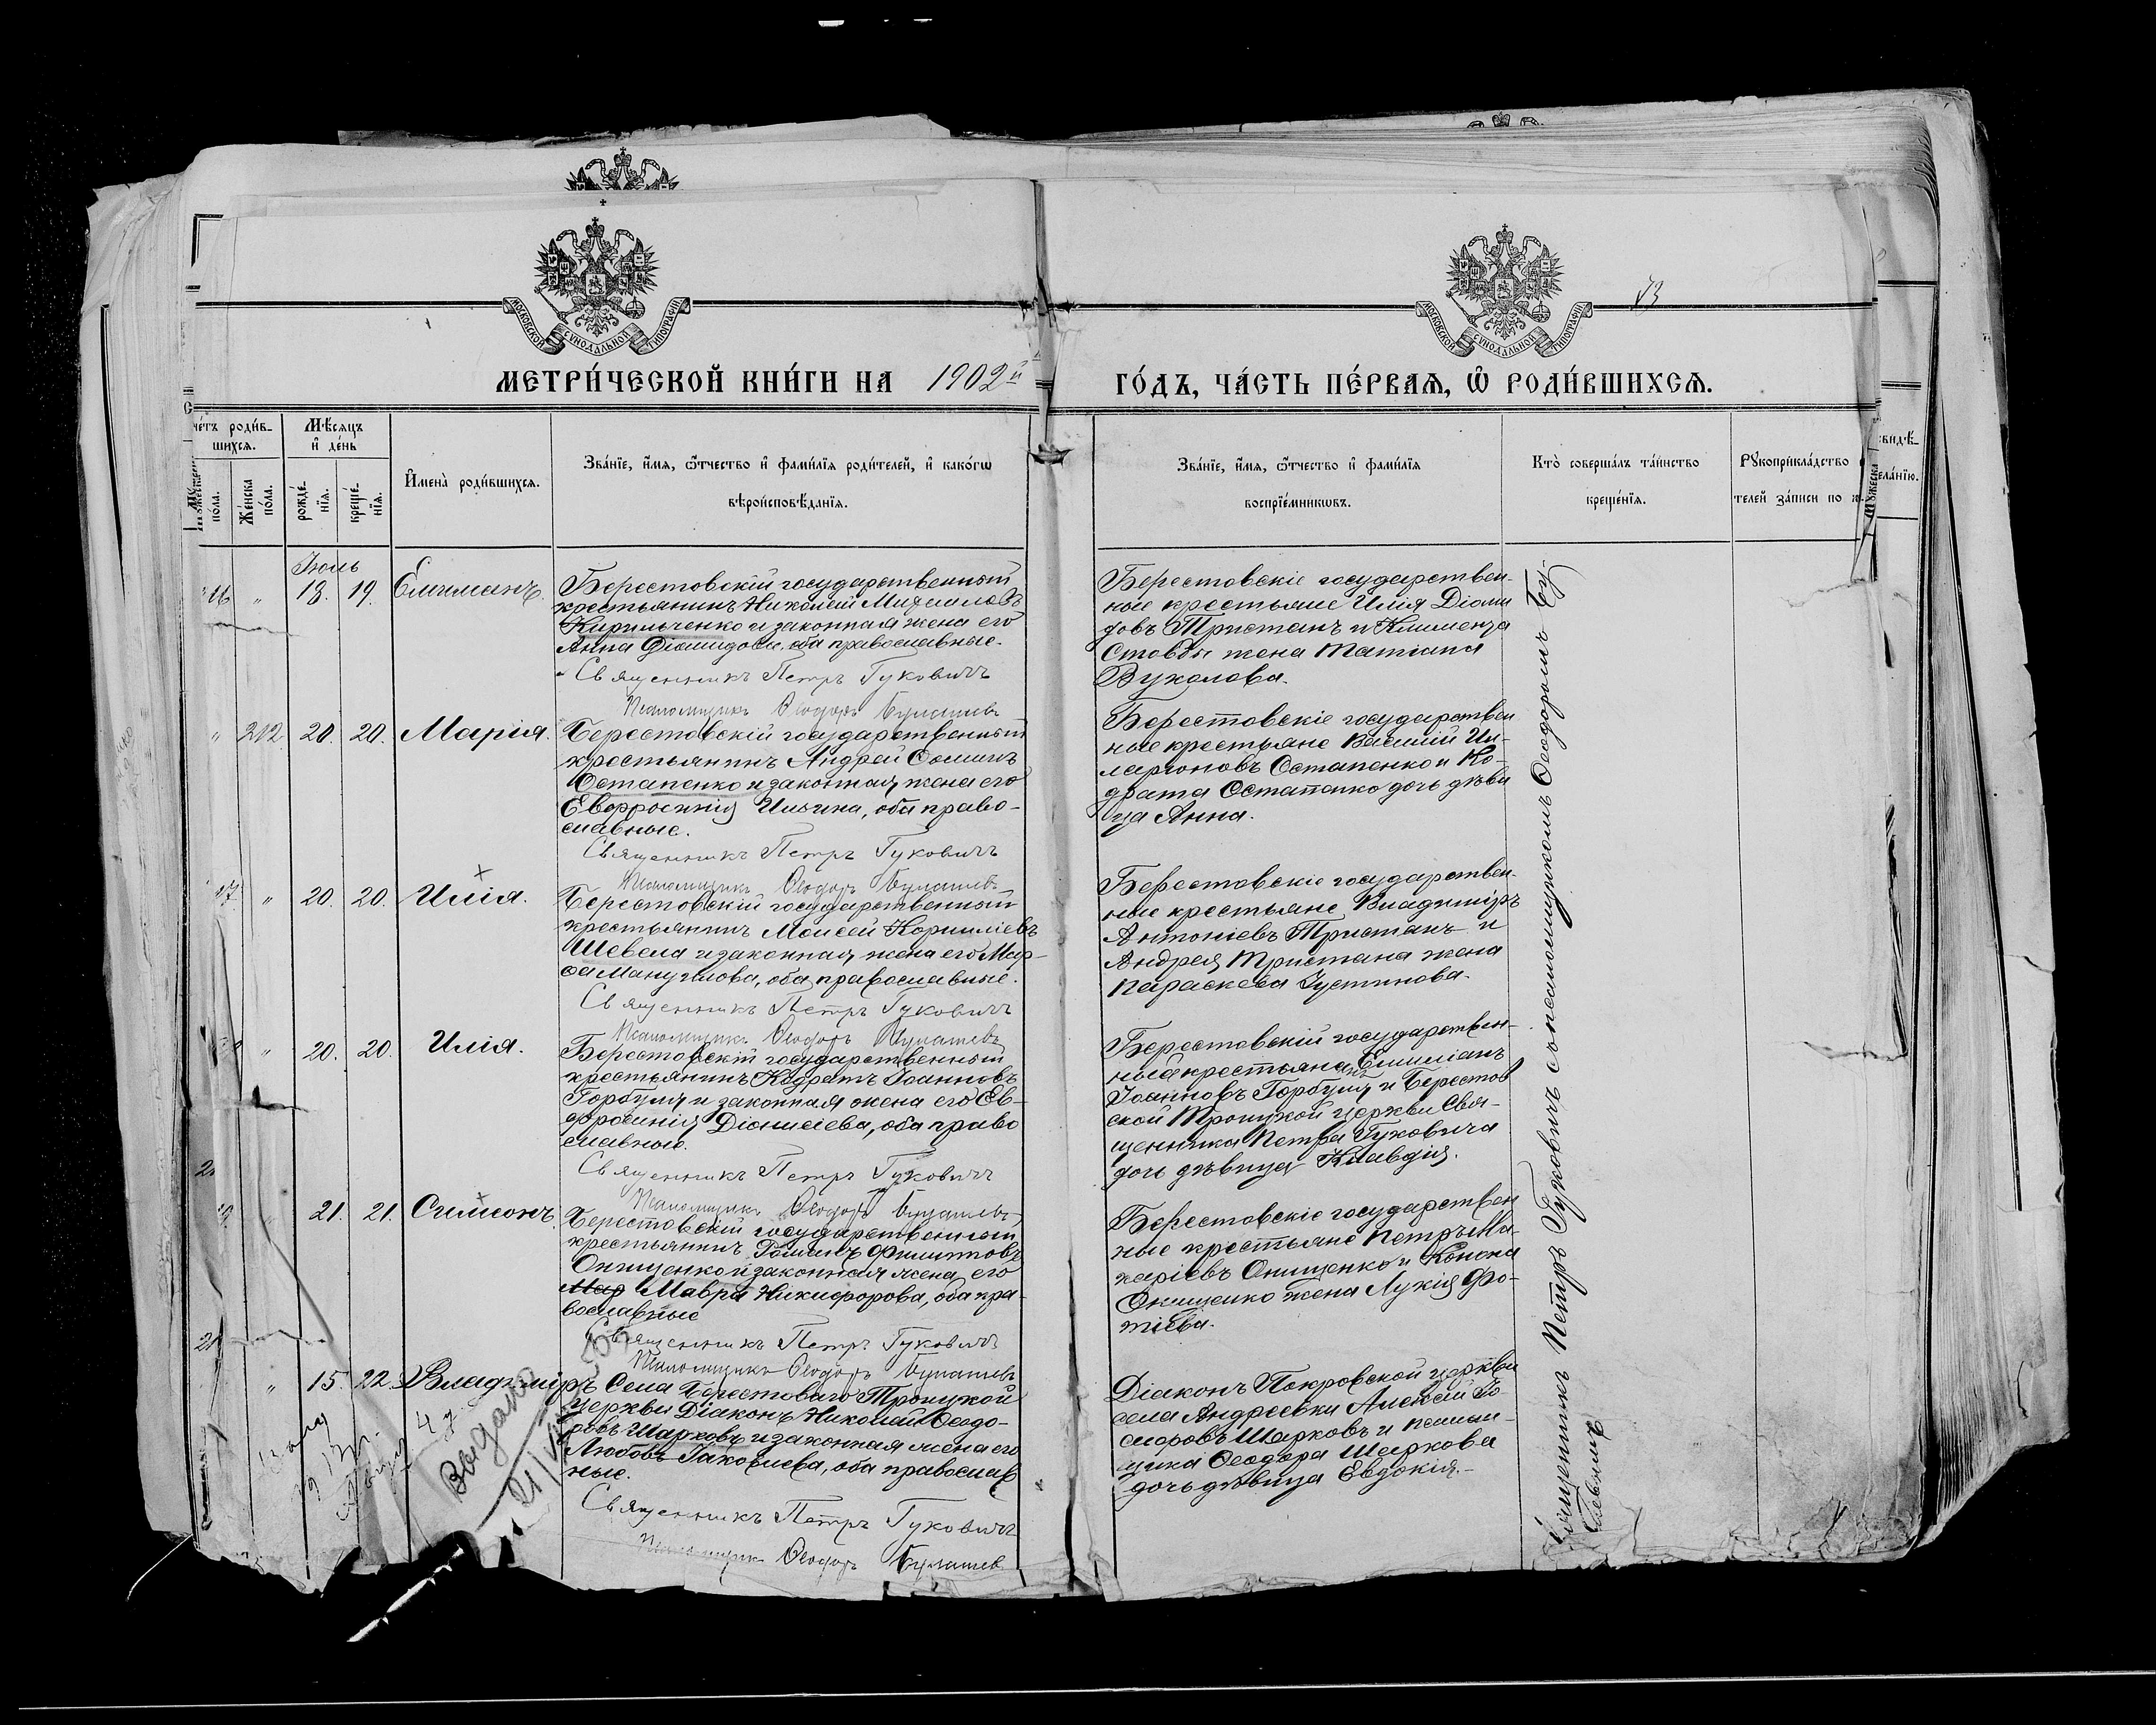 МОСКОВСКОЙ СѴНОДАЛЬНОЙ ТИПОГРАФІИ
МОСКОВСКОЙ СѴНОДАЛЬНОЙ ТИПОГРАФІИ
МЕТРИ́ЧЕСКОЙ КНИ́ГИ НА 1902й ГО́ДЪ, ЧА́СТЬ ПЕ́РВАѦ, Ѡ҆ РОДИ́ВШИХСѦ.
роди́в-
шихсѧ.
Мѣ́сѧцъ
и҆ де́нь
по́ла.
Же́нска
по́ла.
рожде́-
нїѧ.
креще́-
нїѧ.
И҆мена̀ роди́вшихсѧ.
Зва́нїе, и҆́мѧ, ѻ҆́тчество и҆ фами́лїѧ роди́телей, и҆ како́гѡ
вѣроисповѣ́данїѧ.
Зва́нїе, и҆́мѧ, ѻ҆́тчество и҆ фами́лїѧ
воспрїе́мникѡвъ.
Кто̀ соверша́лъ та́инство
креще́нїѧ.
Рꙋкоприкла́дство
телей за́писи по
Іюль
18. 19.
Берестовскій государственный
крестьянинъ Николай Михаиловъ
Кирильченко и законная жена его
Анна Діомидова, оба православные.
Священникъ Петръ Гуковичъ
Псаломщикъ Ѳеодоръ
Берестовскіе государствен-
ные крестьяне Илія Діоми
довъ Тристанъ и Климента
жена Татіана
Вуколова.
" 202. 20. 20. Марія.
Берестовскій государственный
крестьянинъ Андрей
Остапенко и законная жена его
Евфросинія Ильина, оба право-
славные.
Священникъ Петръ Гуковичъ
Псаломщикъ Ѳеодоръ
Берестовскіе государствен
ные крестьяне Василій Ил-
ларіоновъ Остапенко и Ко-
драта Остапенко дочь дѣви
ца Анна.
" 20. 20. Илія.
Берестовскій государственный
крестьянинъ Моисей Корниліевъ
Шевела и законная жена его Мар-
ѳа Мануилова, оба православные.
Священникъ Петръ Гуковичъ
Псаломщикъ Ѳеодоръ
Берестовскіе государствен-
ные крестьяне Владиміръ
Антоніевъ Тристанъ и
Андрея Тристана жена
Параскева Іустинова.
" 20. 20. Илія.
Берестовскій государственный
крестьянинъ Кодратъ Іоанновъ
Горбуля и законная жена его Ев-
фросинія Діонисіева, оба право
славные.
Священникъ Петръ Гуковичъ
Псаломщикъ Ѳеодоръ
Берестовскій государствен-
ный крестьянинъ Емиліанъ
Іоанновъ Горбуля и Берестов
ской Троицкой церкви Свя-
щенника Петра Гуковича
дочь дѣвица Клавдія.
21. 21. Симеонъ.
Берестовскій государственный
крестьянинъ Филипповъ
Онищенко и законная жена его
Мар Мавра Никифорова, оба пра-
вославные
Священникъ Петръ Гуковичъ
Псаломщикъ Ѳеодоръ
Берестовскіе государствен
ные крестьяне Петръ Ма-
каріевъ Онищенко и Конона
Онищенко жена Лукія Фо-
тіева.
" 15. 22. Владиміръ
Села Берестоваго Троицкой
церкви Діаконъ Николай Ѳеодо-
ровъ Шарковъ и законная жена его
Любовь Іаковлева, оба православ
ные.
Священникъ Петръ Гуковичъ
Псаломщикъ Ѳеодоръ
Діаконъ Покровской церкви
села Андреевки Алексій Ѳе-
одоровъ Шарковъ и псалом-
щика Ѳеодора Шаркова
дочь дѣвица Евдокія.
Выдано
Священникъ Петръ Гуковичъ съ псаломщикомъ Ѳеодоромъ